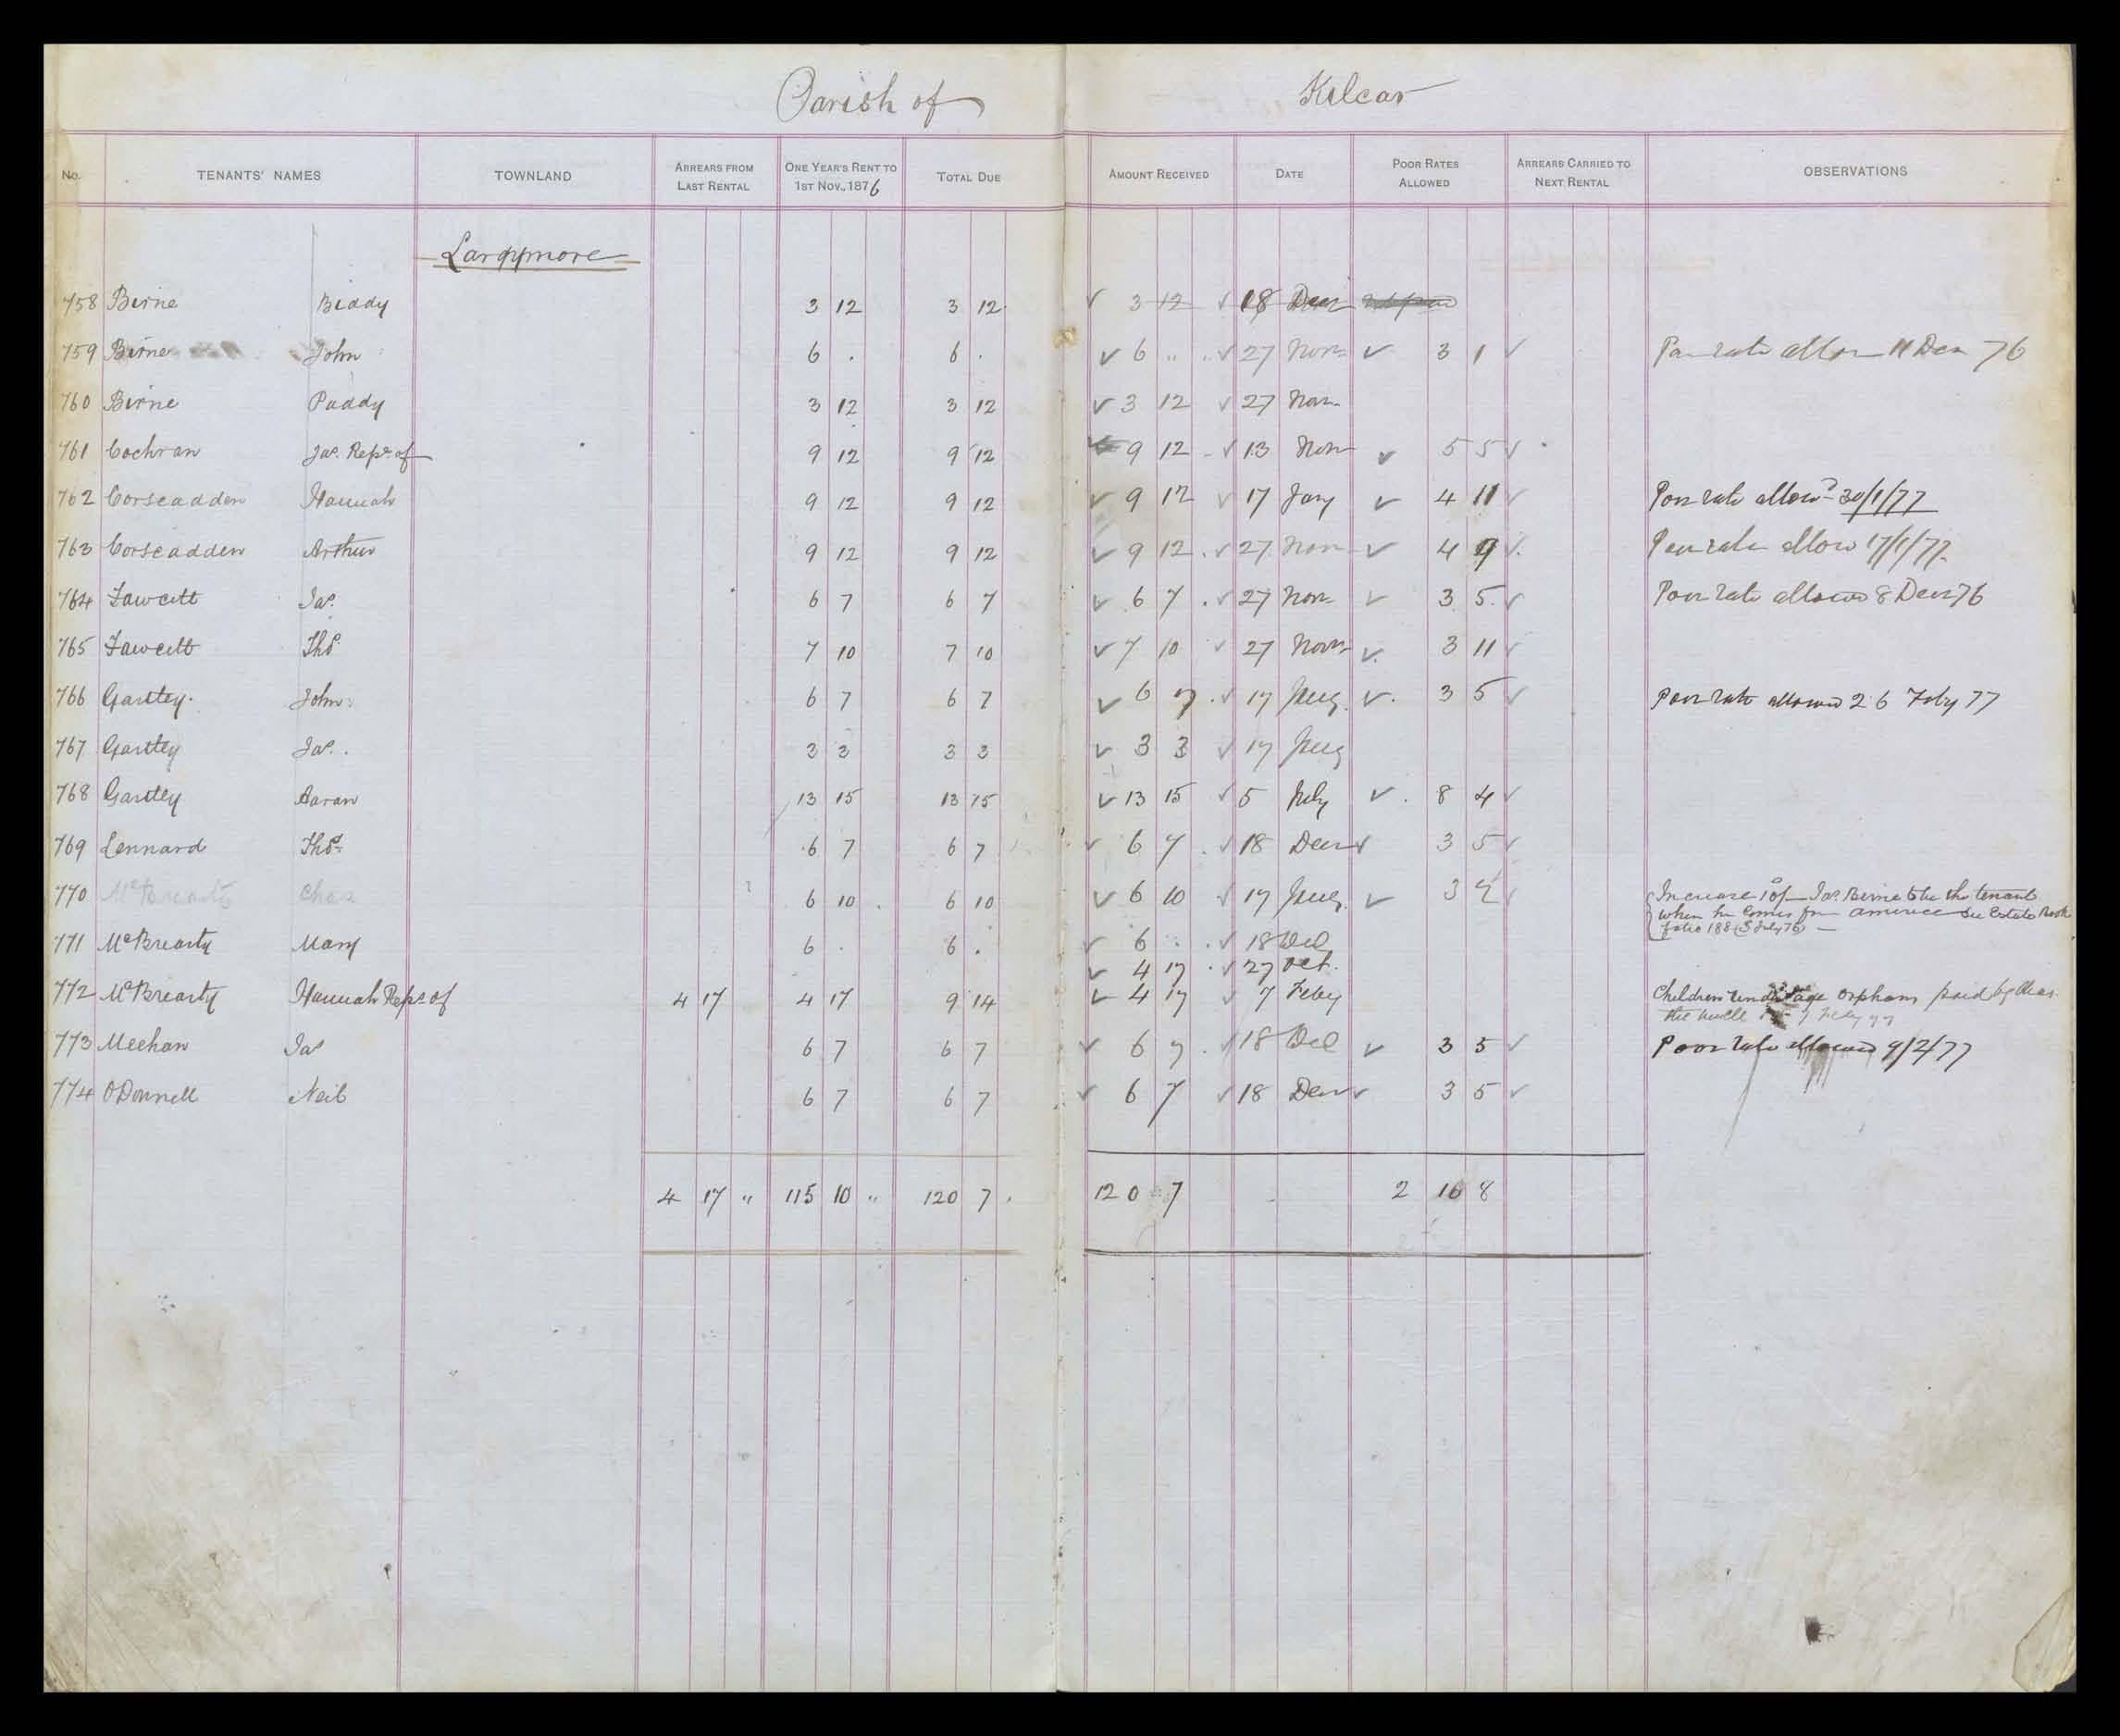 Parish of Kilcar
No. TENANTS' NAMES TOWNLAND ARREARS FROM LAST RENTAL ONE YEAR'S RENT TO 1ST NOV., 1876 TOTAL DUE AMOUNT RECEIVED DATE POOR RATES ALLOWED ARREARS CARRIED TO NEXT RENTAL OBSERVATIONS
Largymore
758 Birne Biddy 3 12 3 12 ✓ 3 12 ✓ 18 Decr
759 Birne John 6 . 6 . ✓ 6 " " ✓ 27 Novr ✓ 3 1 ✓ Poor rate allow 11 Dec 76
760 Birne Paddy 3 12 3 12 ✓ 3 12 ✓ 27 Nov
761 Cochran Jas. Reps. of 9 12 9 12 ✓ 9 12 ✓ 13 Nov ✓ 5 5 ✓
762 Corscadden Hannah 9 12 9 12 ✓ 9 12 ✓ 17 Jany ✓ 4 11 ✓ Poor rate allowd 30/1/77
763 Corscadden Arthur 9 12 9 12 ✓ 9 12 ✓ 27 Nov ✓ 4 9 ✓ Poor rate allow 17/1/77
764 Fawcett Jas. 6 7 6 7 ✓ 6 7 ✓ 27 Nov ✓ 3 5 ✓ Poor rate allowed 8 Decr 76
765 Fawcett Thos. 7 10 7 10 ✓ 7 10 ✓ 27 Novr ✓ 3 11 ✓
766 Gartley John 6 7 6 7 ✓ 6 7 ✓ 17 ✓ 3 5 ✓ Poor rate allowed 26 Feby 77
767 Gartley Jas. 3 3 3 3 ✓ 3 3 ✓ 17
768 Gartley Aaran 13 15 13 15 ✓ 13 15 ✓ 5 July ✓ 8 4 ✓
769 Lennard Thos. 6 7 6 7 ✓ 6 7 ✓ 18 Decr ✓ 3 5 ✓
770 McBrearty Chas 6 10 6 10 ✓ 6 10 ✓ 17 ✓ 3 ✓ Increase 10/- Jas. Birne to be the tenant
when he comes from America See Estate Book
folio 188 (5 July 76)
771 McBrearty Mary 6 . 6 . ✓ 6 . . ✓ 18 Dec
✓ 4 17 ✓ 27 Oct.
772 McBrearty Hannah Reps. of 4 17 4 17 9 14 ✓ 4 17 ✓ 7 Feby Children under age Orphans paid by Chas.
the uncle 7 Feby 77
773 Meehan Jas 6 7 6 7 ✓ 6 7 ✓ 18 Dec ✓ 3 5 ✓ Poor rate allowed 9/2/77
774 ODonnell Neil 6 7 6 7 ✓ 6 7 ✓ 18 Decr ✓ 3 5 ✓
4 17 " 115 10 " 120 7 . 120 7 2 16 8